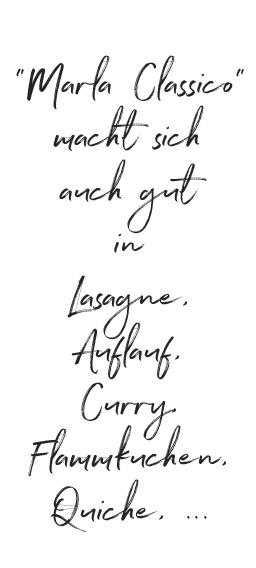 "Marla Classico"
macht sich
auch gut
in
Lasagne,
Auflauf,
Curry,
Flammkuchen,
Quiche, ...